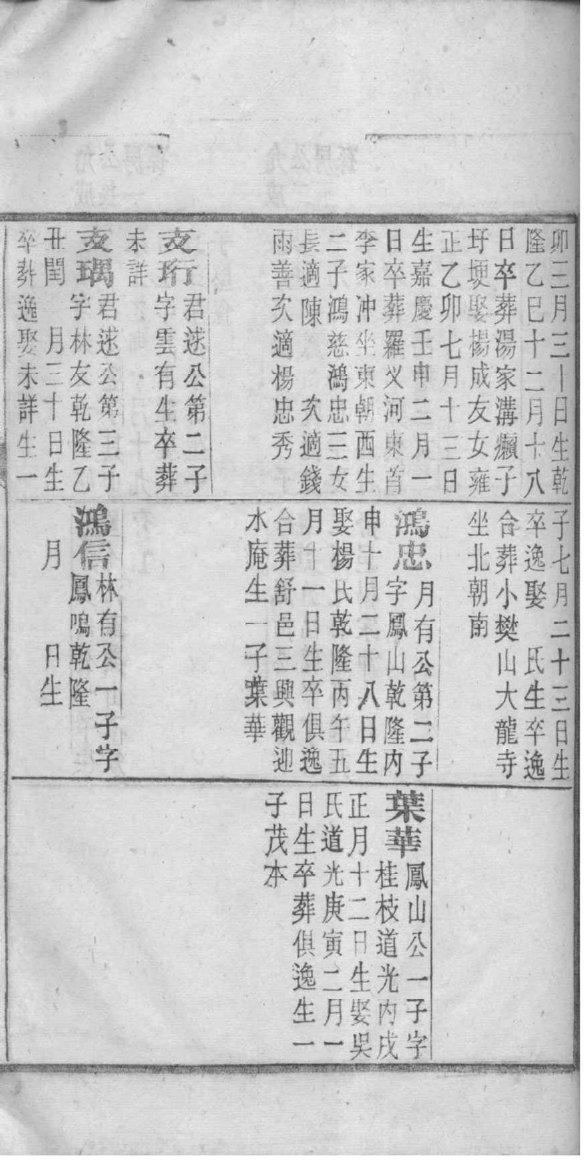 卯三月三十日生乾
隆乙巳十二月十八
日卒葬湯家溝癩子
圩埂娶楊成友女雍
正乙卯七月十三日
生嘉慶壬申二月一
日卒葬羅义河東首
李家冲坐東朝西生
二子鴻慈鴻忠三女
長適陳　次適錢
雨善次適楊忠秀
文珩君逑公第二子
字雲有生卒葬
未詳
文瑀君逑公第三子
字林友乾隆乙
丑閏　月三十日生
卒葬逸娶未詳生一
子七月二十三日生
卒逸娶　氏生卒逸
合葬小樊山大龍寺
坐北朝南
鴻忠月有公第二子
字鳳山乾隆丙
申十月二十八日生
娶楊氏乾隆丙午五
月十一日生卒俱逸
合葬舒邑三興觀迎
水庵生一子葉華
鴻信林有公一子字
鳳鳴乾隆
月　日生
葉華鳳山公一子字
桂枝道光丙戌
正月十二日生娶吳
氏道光庚寅二月一
日生卒葬俱逸生一
子茂本